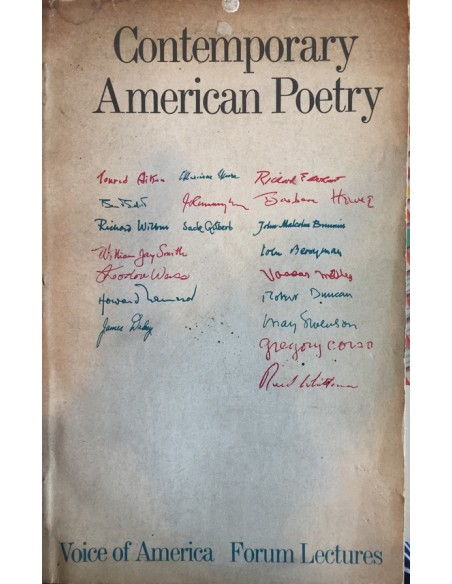 Contemporary
American Poetry
Conrad Aiken Marianne Moore Richard Eberhart
J V Cunningham Barbara Howes
Richard Wilbur Jack Gilbert John Malcolm Brinnin
William Jay Smith John Berryman
Theodore Weiss Vassar Miller
Howard Nemerov Robert Duncan
James Dickey May Swenson
Gregory Corso
Reed Whittemore
Voice of America Forum Lectures